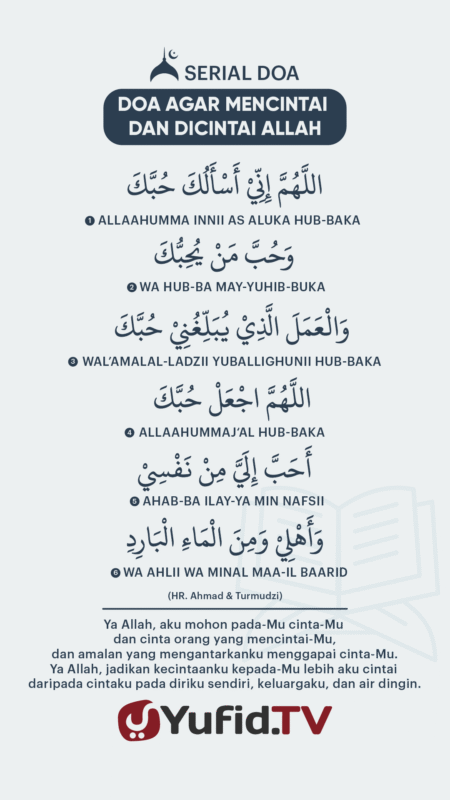 SERIAL DOA
DOA AGAR MENCINTAI
DAN DICINTAI ALLAH
اللَّهُمَّ إِنِّيْ أَسْأَلُكَ حُبَّكَ
1 ALLAAHUMMA INNII AS ALUKA HUB-BAKA
وَحُبَّ مَنْ يُحِبُّكَ
2 WA HUB-BA MAY-YUHIB-BUKA
وَالْعَمَلَ الَّذِيْ يُبَلِّغُنِيْ حُبَّكَ
3 WAL'AMALAL-LADZII YUBALLIGHUNII HUB-BAKA
اللَّهُمَّ اجْعَلْ حُبَّكَ
4 ALLAAHUMMAJ'AL HUB-BAKA
أَحَبَّ إِلَيَّ مِنْ نَفْسِيْ
5 AHAB-BA ILAY-YA MIN NAFSII
وَأَهْلِيْ وَمِنَ الْمَاءِ الْبَارِدِ
6 WA AHLII WA MINAL MAA-IL BAARID
(HR. Ahmad & Turmudzi)
Ya Allah, aku mohon pada-Mu cinta-Mu
dan cinta orang yang mencintai-Mu,
dan amalan yang mengantarkanku menggapai cinta-Mu.
Ya Allah, jadikan kecintaanku kepada-Mu lebih aku cintai
daripada cintaku pada diriku sendiri, keluargaku, dan air dingin.
YUFID.TV